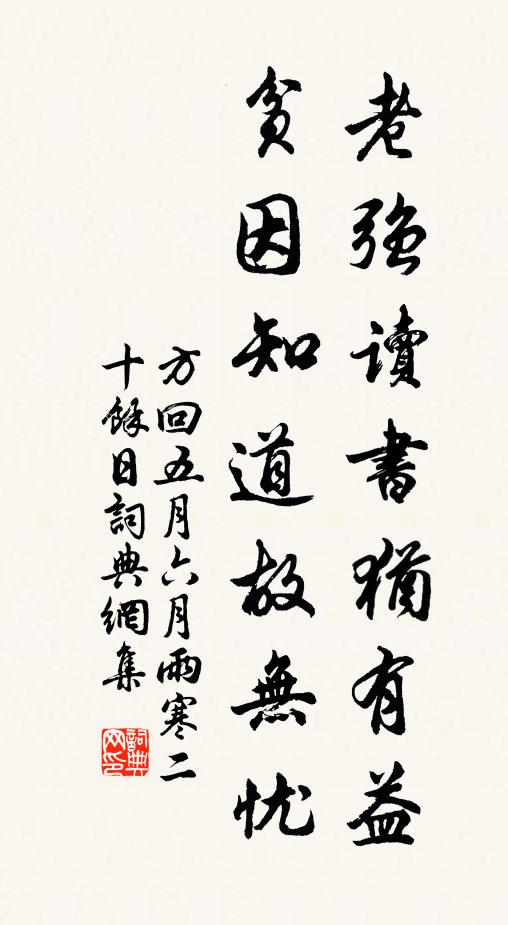 老強讀書猶有益
貧因知道故無忧
方回五月六月雨寒二
十餘日詞典網集
詞典
网印